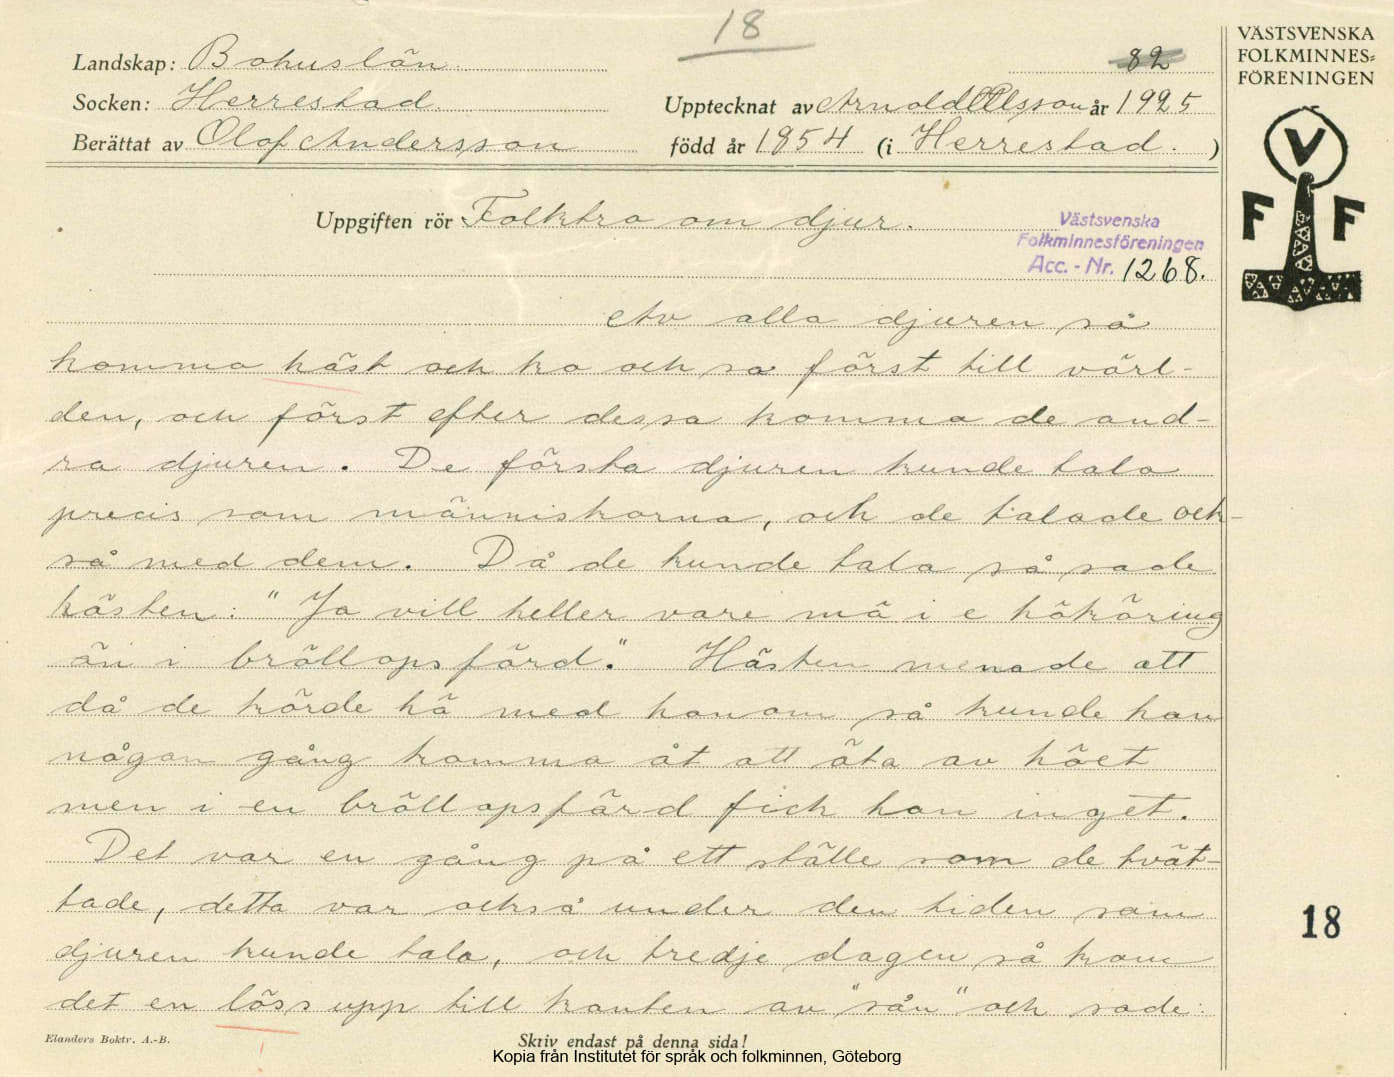 18
VÄSTSVENSKA
FOLKMINNES=
FÖRENINGEN
V
F F
Landskap: Bohuslän
82
Socken: Herrestad. Upptecknat av Arnold Olsson år 1925
Berättat av Olof Andersson född år 1854 (i Herrestad. )
Uppgiften rör Folktro om djur.
Västsvenska
Folkminnesföreningen
Acc. - Nr. 1268.
Av alla djuren så
komma häst och ko och so först till värl-
den, och först efter dessa komma de and-
ra djuren. De första djuren kunde tala
precis som människorna, och de talade ock-
så med dem. Då de kunde tala så sade
hästen: "Ja vill heller vare mä i e hököring
än i bröllopsfärd." Hästen menade att
då de körde hö med honom så kunde han
någon gång komma åt att äta av höet
men i en bröllopsfärd fick han inget.
Det var en gång på ett ställe som de tvät-
tade, detta var också under den tiden som
djuren kunde tala, och tredje dagen så kom
det en löss upp till kanten av "sån" och sade:
18
Elanders Boktr. A.-B.
Skriv endast på denna sida!
Kopia från Institutet för språk och folkminnen, Göteborg